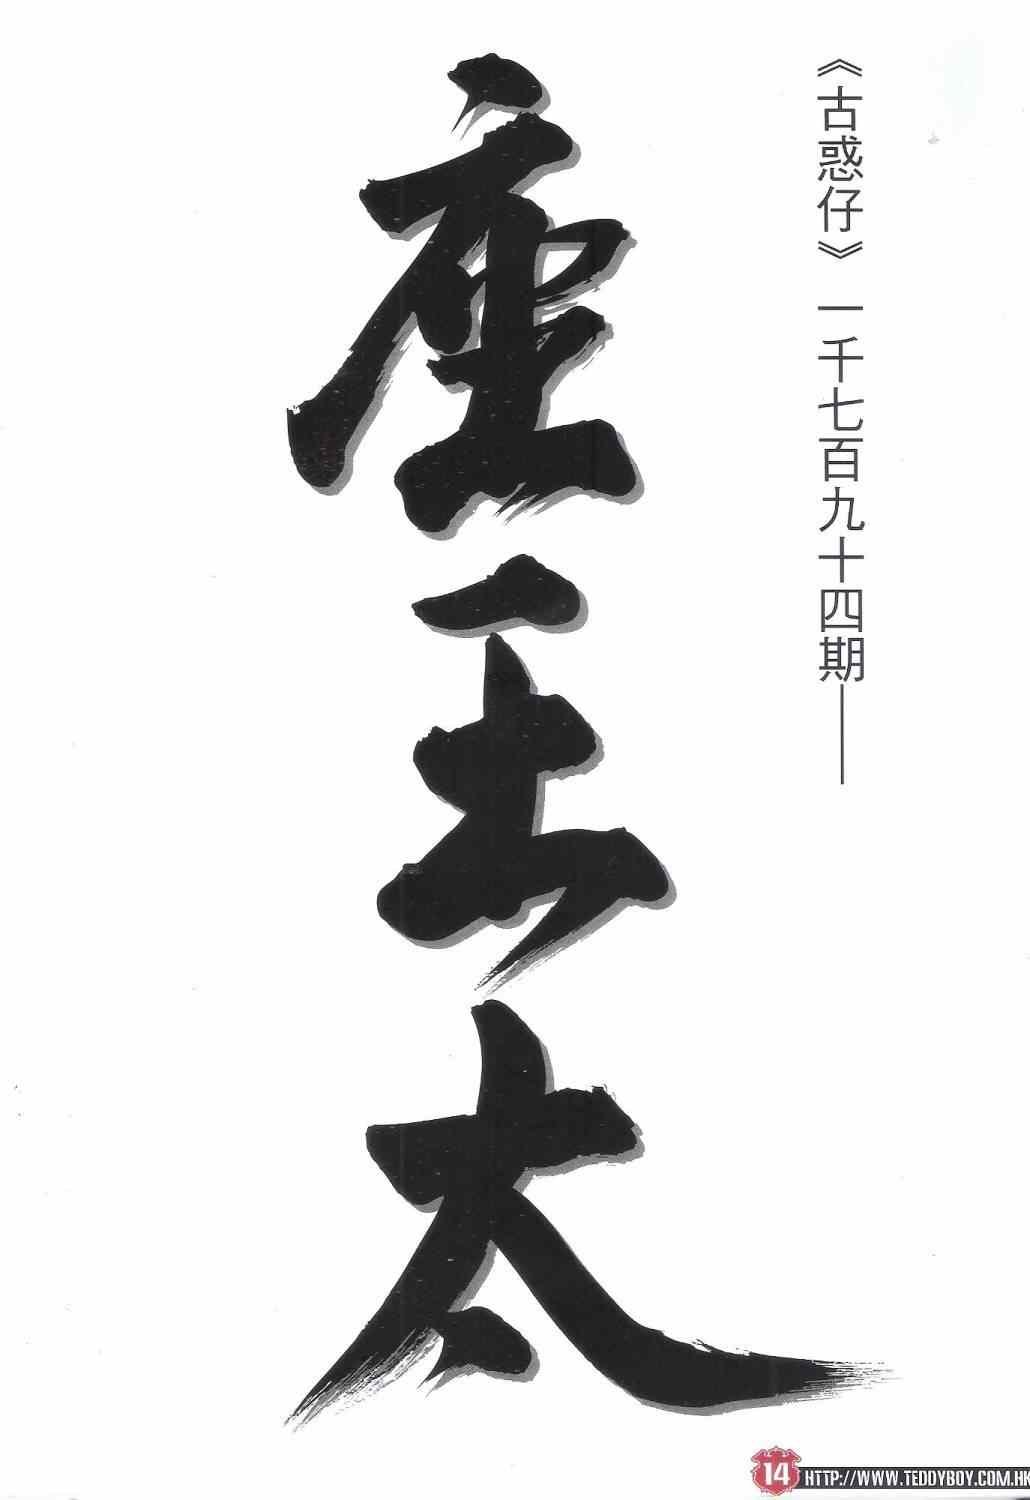 《古惑仔》一千七百九十四期——
座王太
14 HTTP://WWW.TEDDYBOY.COM.HK